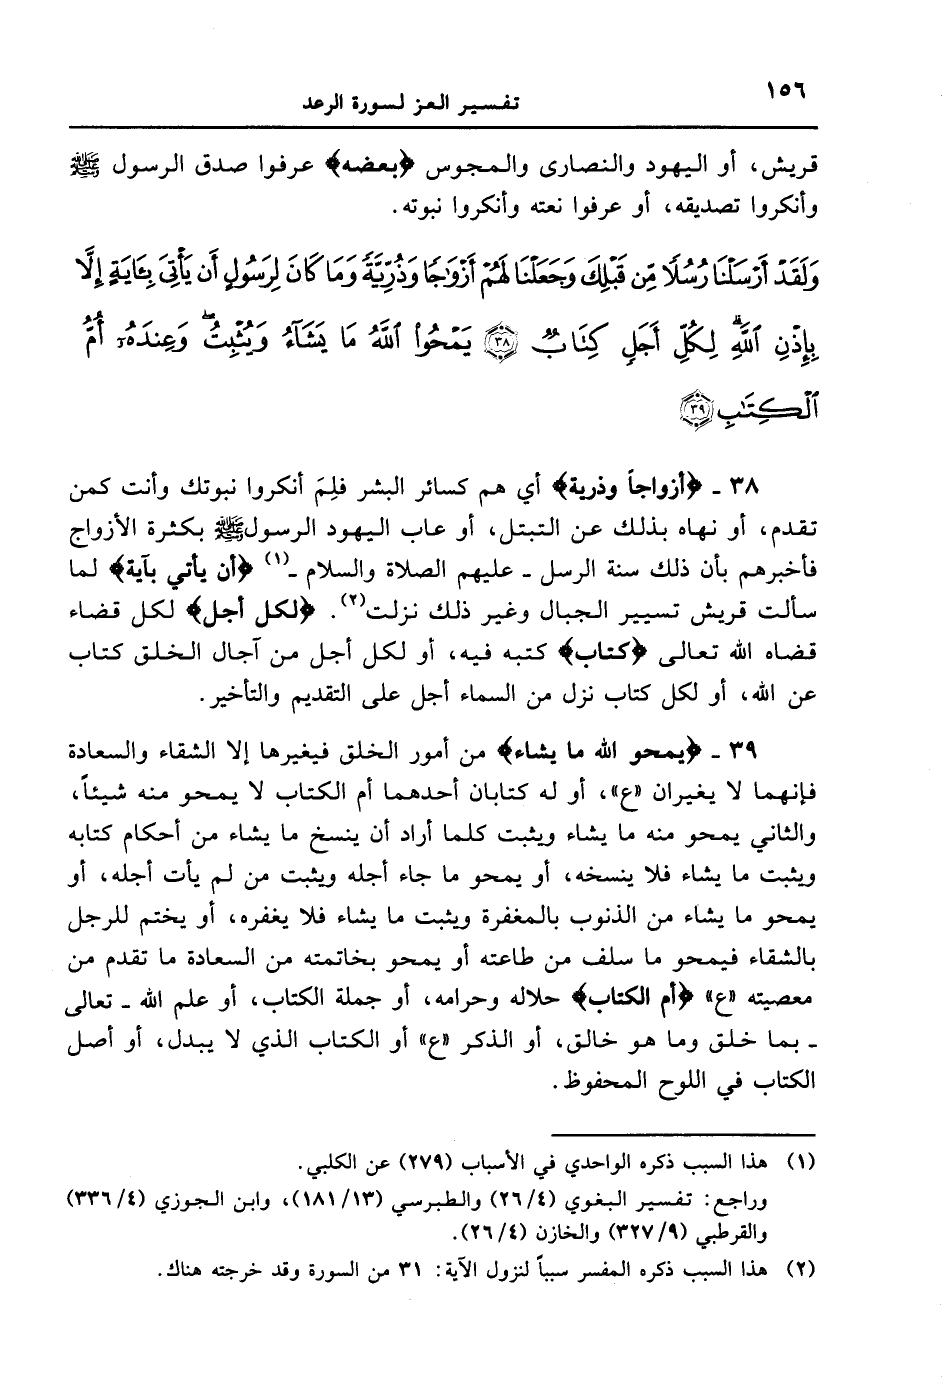 ١٥٦
تفسير العز لسورة الرعد
قريش، أو اليهود والنصارى والمجوس ﴿بعضه﴾ عرفوا صدق الرسول ﷺ
وأنكروا تصديقه، أو عرفوا نعته وأنكروا نبوته.
وَلَقَدْ أَرْسَلْنَا رُسُلًا مِّن قَبْلِكَ وَجَعَلْنَا لَهُمْ أَزْوَٰجًا وَذُرِّيَّةً وَمَا كَانَ لِرَسُولٍ أَن يَأْتِىَ بِـَٔايَةٍ إِلَّا
بِإِذْنِ ٱللَّهِ ۗ لِكُلِّ أَجَلٍ كِتَابٌ ﴿٣٨﴾ يَمْحُوا۟ ٱللَّهُ مَا يَشَآءُ وَيُثْبِتُ ۖ وَعِندَهُۥٓ أُمُّ
ٱلْكِتَٰبِ ﴿٣٩﴾
٣٨ ـ ﴿أزواجاً وذرية﴾ أي هم كسائر البشر فلِمَ أنكروا نبوتك وأنت كمن
تقدم، أو نهاه بذلك عن التبتل، أو عاب اليهود الرسولﷺ بكثرة الأزواج
فأخبرهم بأن ذلك سنة الرسل ـ عليهم الصلاة والسلام ـ(١) ﴿أن يأتي بآية﴾ لما
سألت قريش تسيير الجبال وغير ذلك نزلت(٢). ﴿لكل أجل﴾ لكل قضاء
قضاه الله تعالى ﴿كتاب﴾ كتبه فيه، أو لكل أجل من آجال الخلق كتاب
عن الله، أو لكل كتاب نزل من السماء أجل على التقديم والتأخير.
٣٩ ـ ﴿يمحو الله ما يشاء﴾ من أمور الخلق فيغيرها إلا الشقاء والسعادة
فإنهما لا يغيران «ع»، أو له كتابان أحدهما أم الكتاب لا يمحو منه شيئاً،
والثاني يمحو منه ما يشاء ويثبت كلما أراد أن ينسخ ما يشاء من أحكام كتابه
ويثبت ما يشاء فلا ينسخه، أو يمحو ما جاء أجله ويثبت من لم يأت أجله، أو
يمحو ما يشاء من الذنوب بالمغفرة ويثبت ما يشاء فلا يغفره، أو يختم للرجل
بالشقاء فيمحو ما سلف من طاعته أو يمحو بخاتمته من السعادة ما تقدم من
معصيته «ع» ﴿أم الكتاب﴾ حلاله وحرامه، أو جملة الكتاب، أو علم الله ـ تعالى
ـ بما خلق وما هو خالق، أو الذكر «ع» أو الكتاب الذي لا يبدل، أو أصل
الكتاب في اللوح المحفوظ.
(١) هذا السبب ذكره الواحدي في الأسباب (٢٧٩) عن الكلبي.
وراجع: تفسير البغوي (٢٦/٤) والطبرسي (١٨١/١٣)، وابن الجوزي (٣٣٦/٤)
والقرطبي (٣٢٧/٩) والخازن (٢٦/٤).
(٢) هذا السبب ذكره المفسر سبباً لنزول الآية: ٣١ من السورة وقد خرجته هناك.